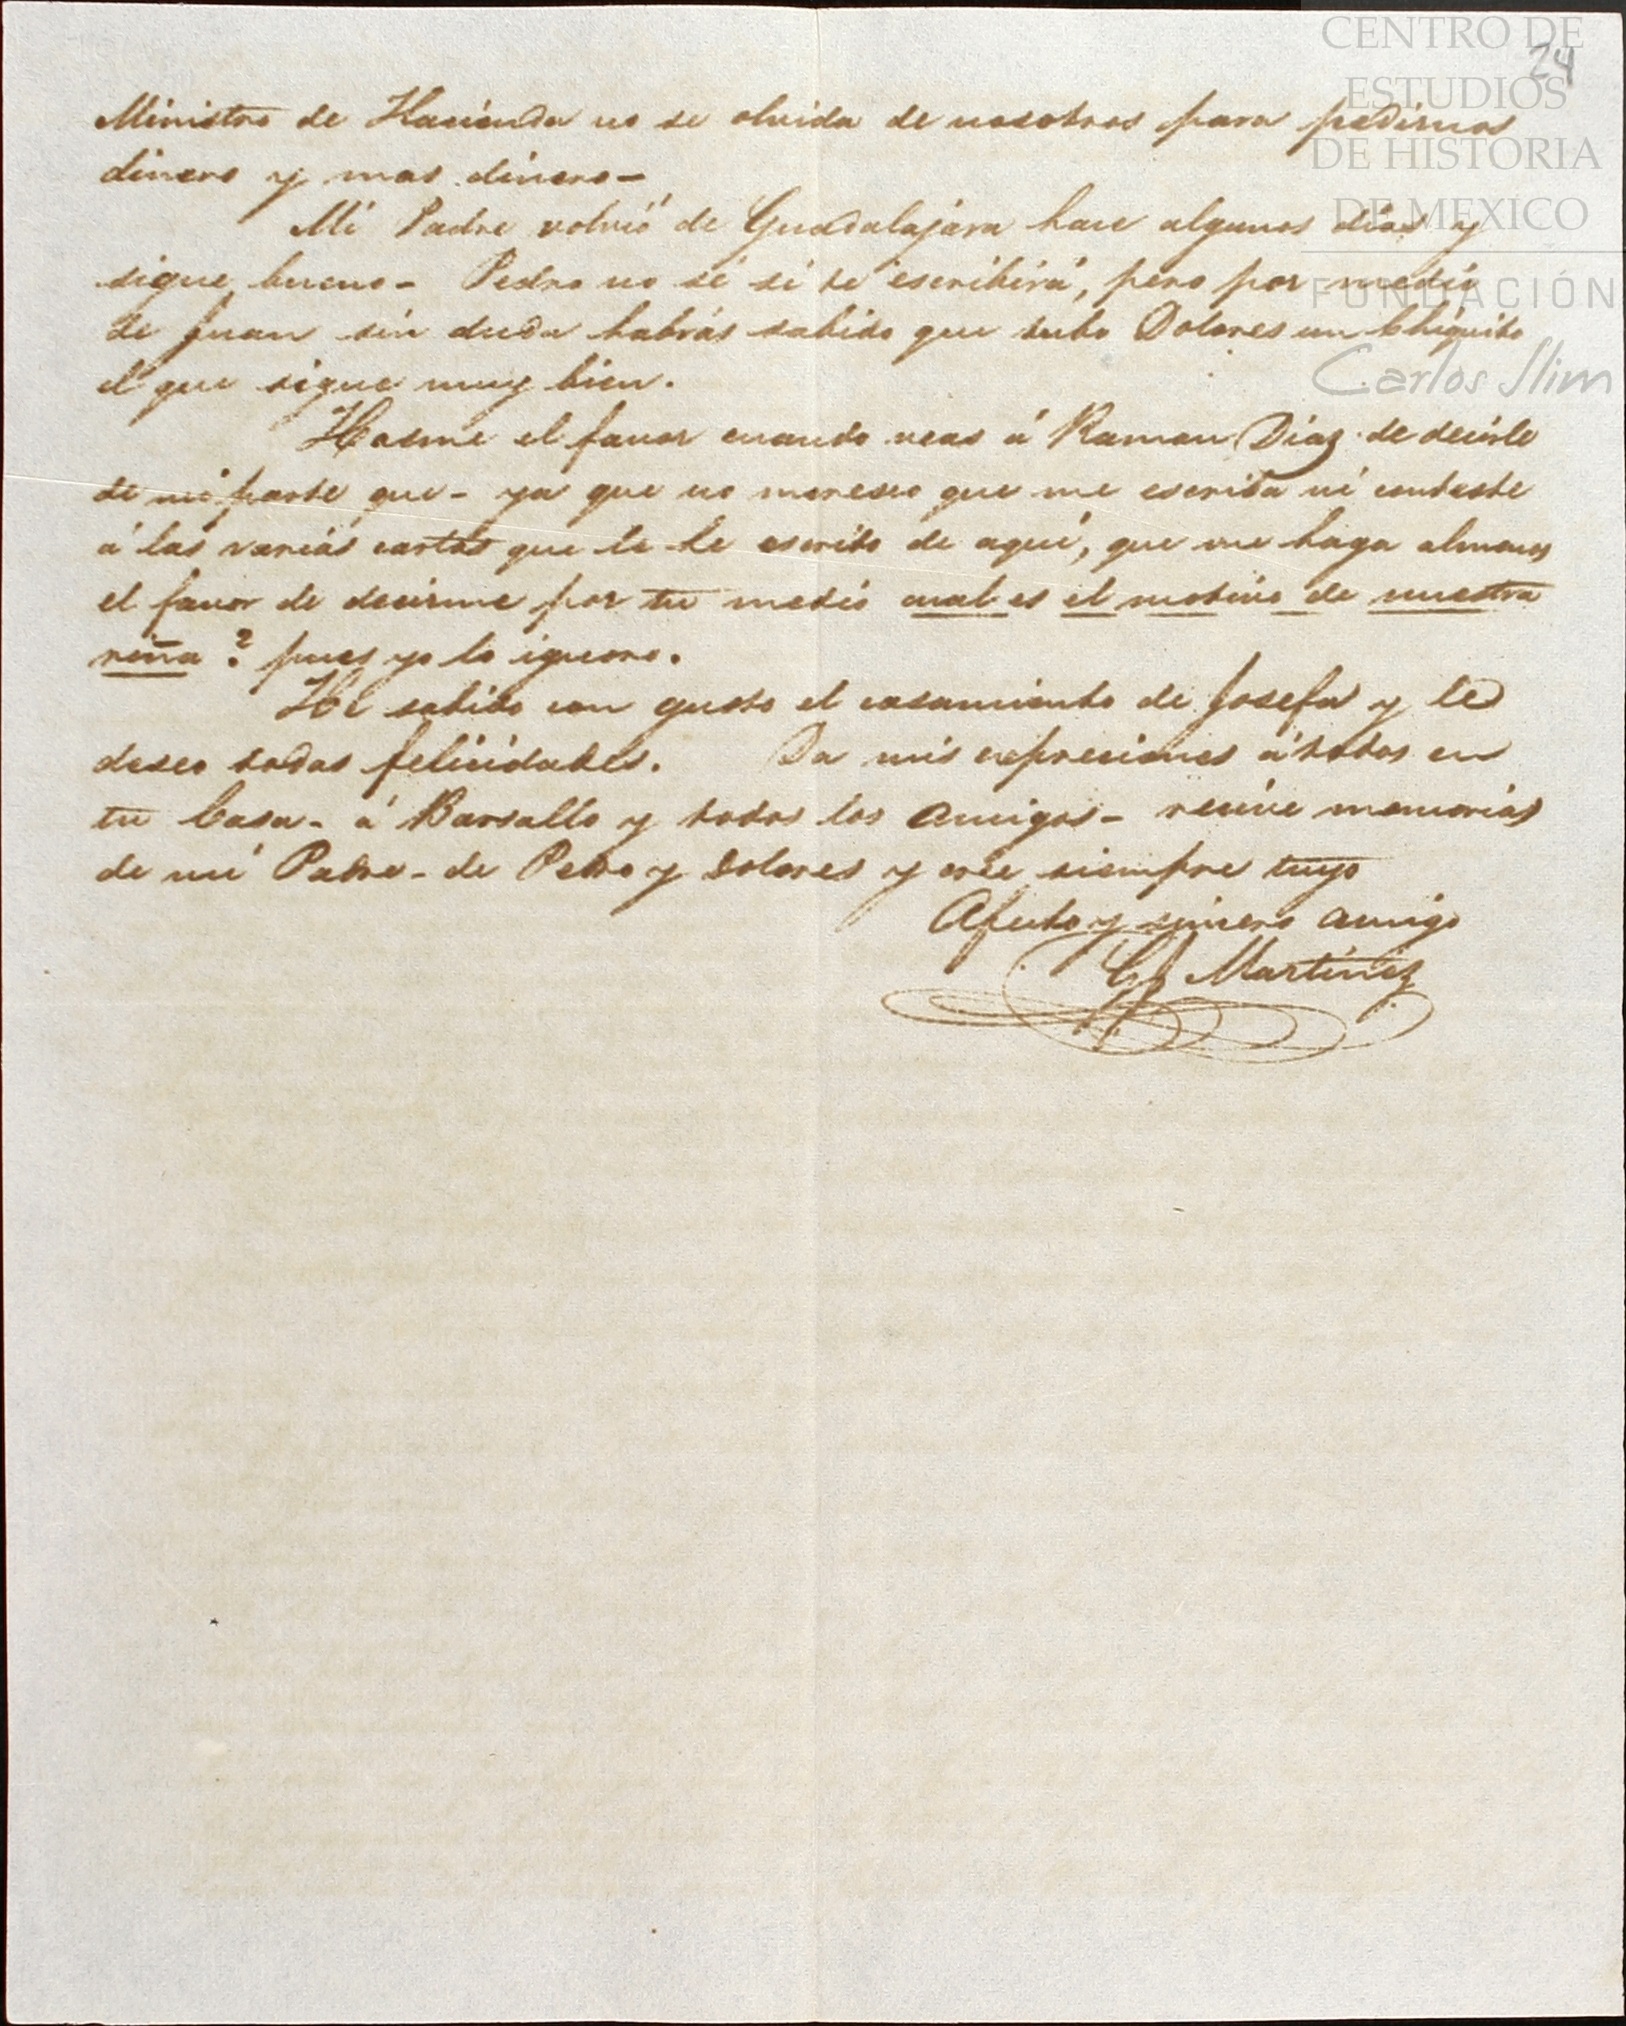 CENTRO DE
ESTUDIOS
DE HISTORIA
DE MEXICO
FUNDACIÓN
Carlos Slim
24
Ministro de Hacienda no se olvida de nosotros para pedirnos
dinero y mas dinero-
Mi Padre volvió de Guadalajara hace algunos días y
sigue bueno- Pedro no sé si te escribirá, pero por medio
de Juan sin duda habrás sabido que tubo Dolores un Chiquito
el que sigue muy bien.
Hasme el favor cuando veas á Ramon Diaz de decirle
de mi parte que- ya que no meresco que me escriba ni conteste
á las varias cartas que le he escrito de aqui, que me haga almenos
el favor de decirme por tu medio cual es el motivo de nuestra
riña? pues yo lo ignoro.
Hé sabido con gusto el casamiento de Josefa y le
deseo todas felicidades. Da mis expreciones á todos en
tu Casa- á Barsallo y todos los amigos- recive memorias
de mi Padre- de Pedro y Dolores y cree siempre tuyo
Afecto y sincero amigo
Martinez